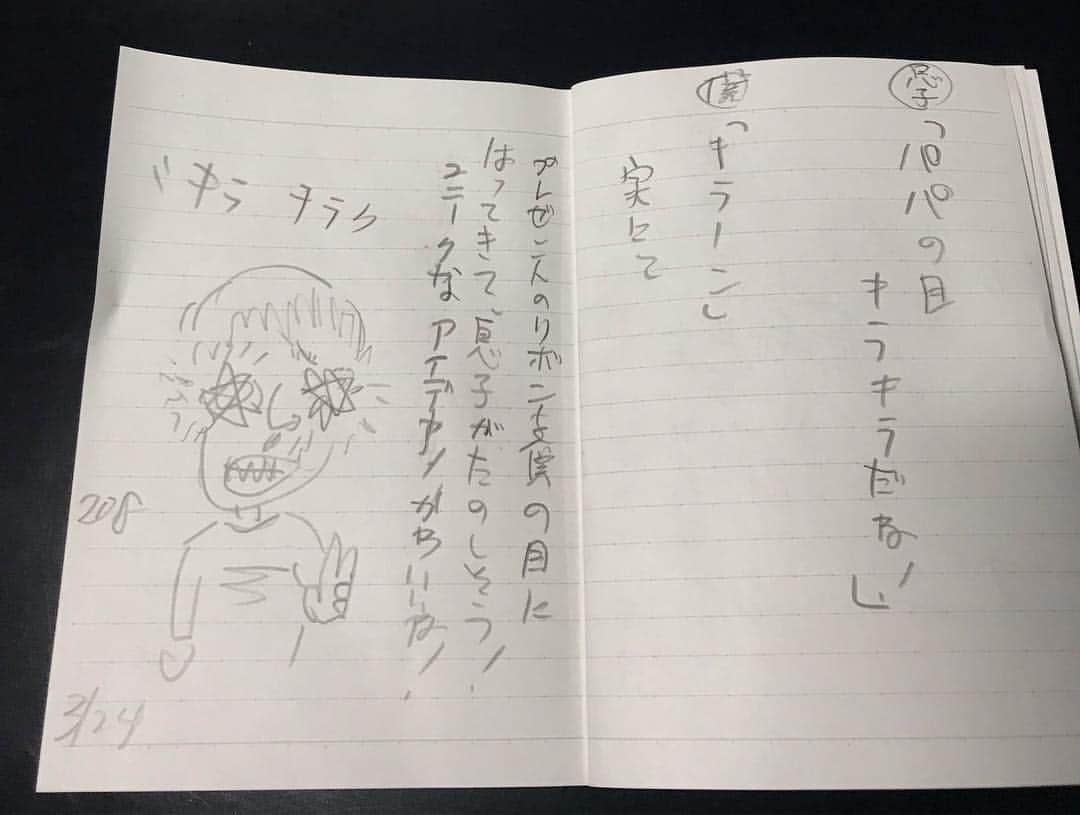 息子「パパの目
キラキラだな!」
僕「キラーン」
実にて
プレゼントのリボンを僕の目に
はってきて、息子がたのしそう!
ユニークなアイデアがかわいいな!
キラ キラ
208
3/24